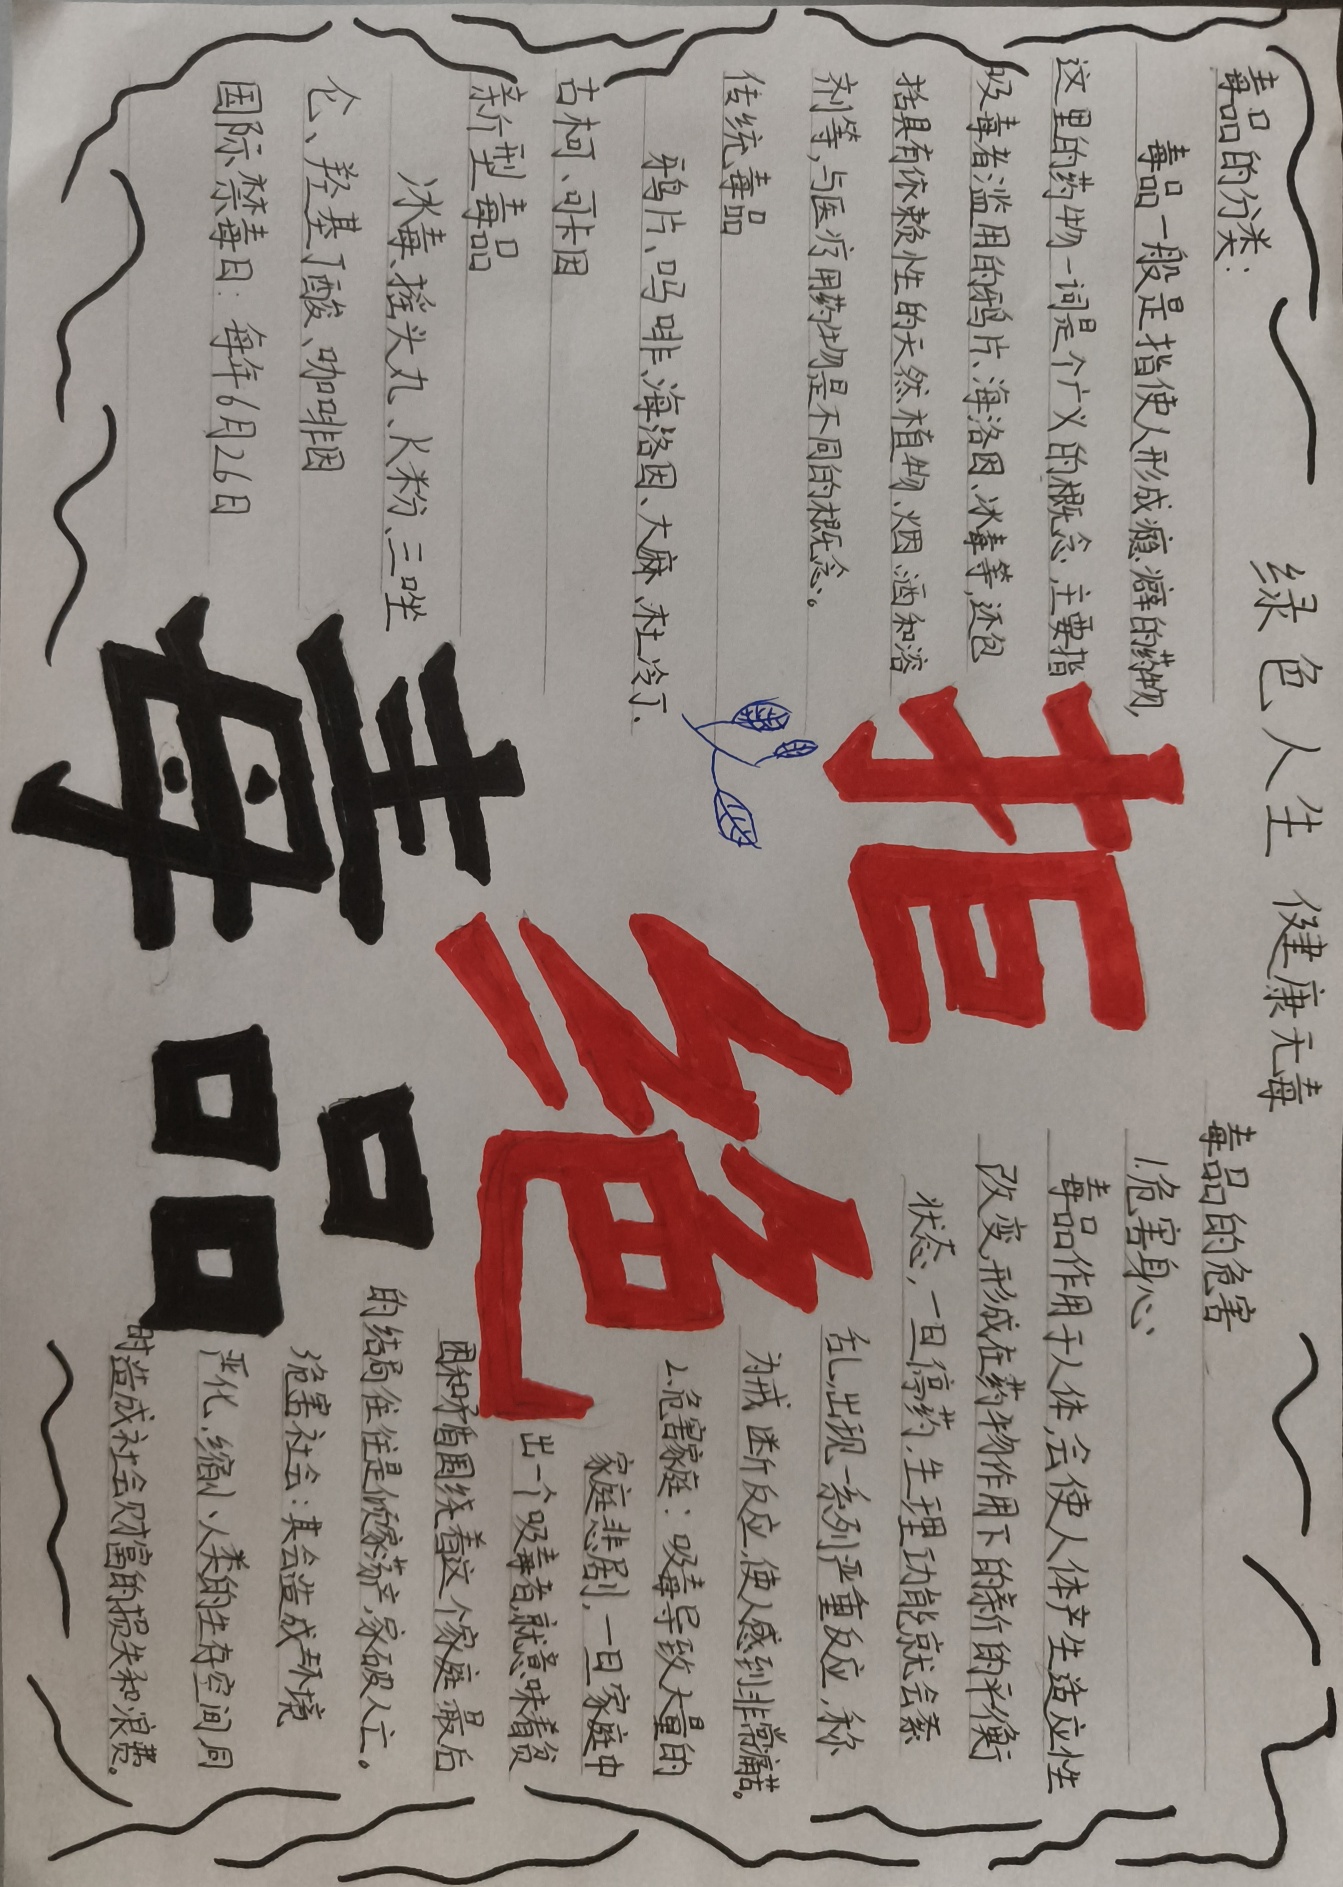 绿色人生 健康无毒
毒品的分类：
毒品一般是指使人形成瘾癖的药物，
这里的药物一词是个广义的概念，主要指
吸毒者滥用的鸦片、海洛因、冰毒等，还包
括具有依赖性的天然植物、烟、酒和溶
剂等，与医疗用药物是不同的概念。
传统毒品
鸦片、吗啡、海洛因、大麻、杜冷丁、
古柯、可卡因
新型毒品
冰毒、摇头丸、K粉、三唑
仑、羟基丁酸、咖啡因
国际禁毒日：每年6月26日
拒绝
毒品
毒品的危害
1.危害身心
毒品作用于人体，会使人体产生适应性
改变，形成在药物作用下的新的平衡
状态，一旦停药，生理功能就会紊
乱，出现一系列严重反应，称
为戒断反应，使人感到非常痛苦。
2.危害家庭：吸毒导致大量的
家庭悲剧，一旦家庭中
出一个吸毒者，就意味着贫
困和矛盾围绕着这个家庭，最后
的结局往往是倾家荡产，家破人亡。
危害社会：其会造成环境
严化，缩小人类的生存空间，同
时造成社会财富的损失和浪费。